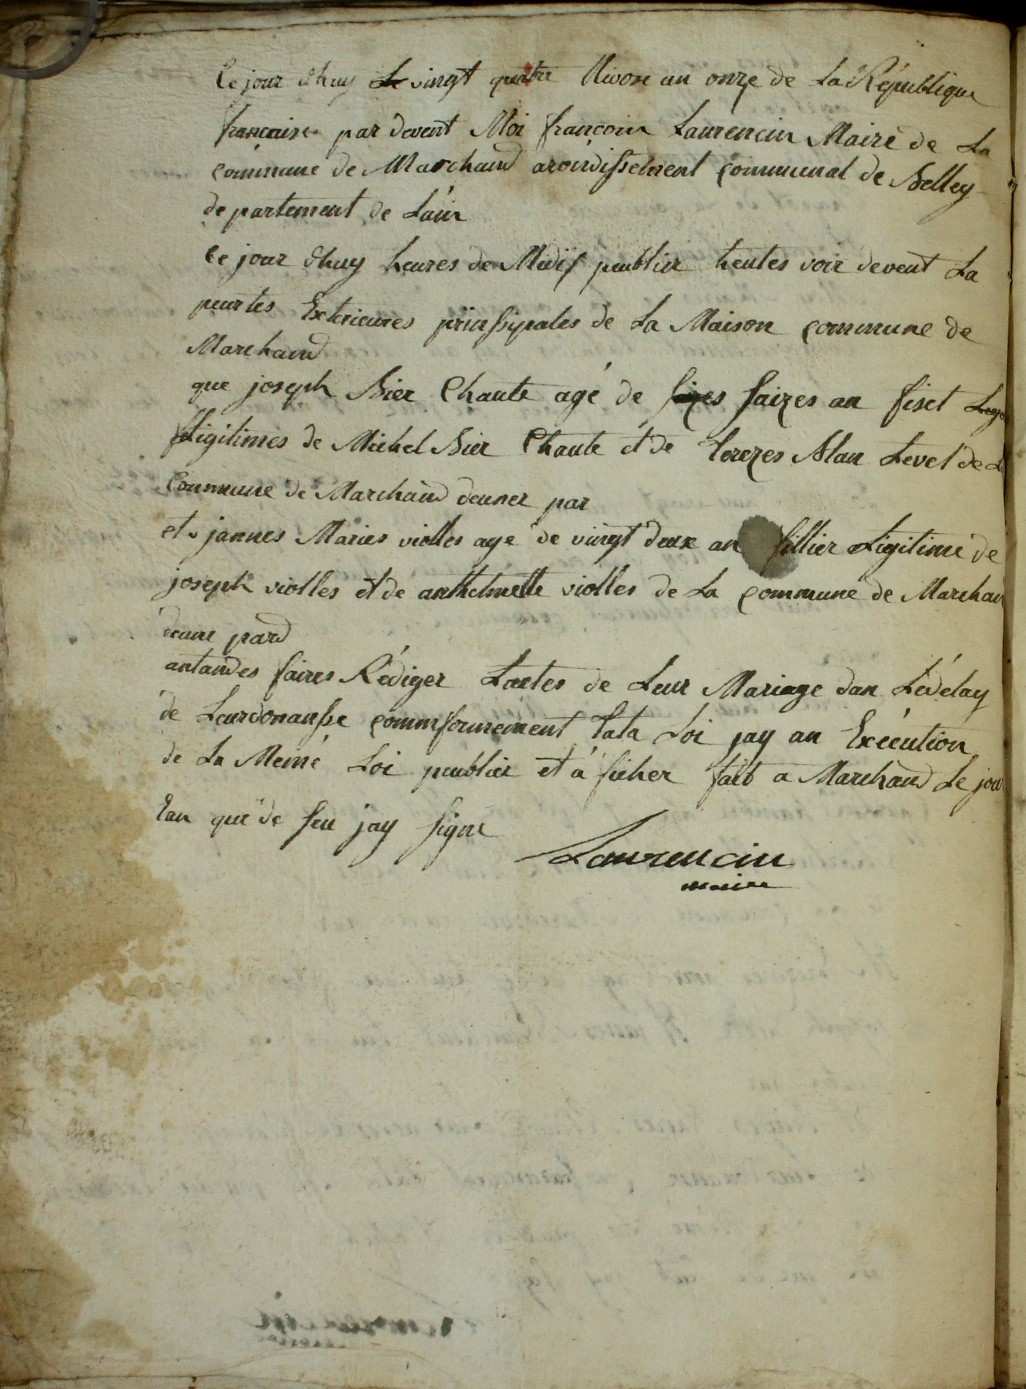 Ce jour dhuy Le vingt quatre Nivose an onze de La République
francaire par devent Moi francoin Laurencin Maire de La
commune de Marchand aroindissement communal de Belley
departement de Lain
Ce jour dhuy heures de Midis peublier heutes voir devent La
peurtes Exterieures prinssipales de La Maison commune de
Marchand
que joseph Bier Chaute agé de saizes an fiset
Ligitimes de Michel Bier Chaute et de Terezes Alan Levet de
Commune de Marchand deuner par
et jannes Maries violles age de vingt deux an fillier Ligitime de
joseph violles et de anthelmette violles de La commune de Marchan
deune pard
antandes faires Rédiger Lactes de Leur Mariage dan Ledélay
de Leurdonansse commformement Lala Loi jay an Exécution
de La Meme Loi peublier et a ficher fait a Marchand Le jour
Lan que de seu jay signe
Laurencin
maire